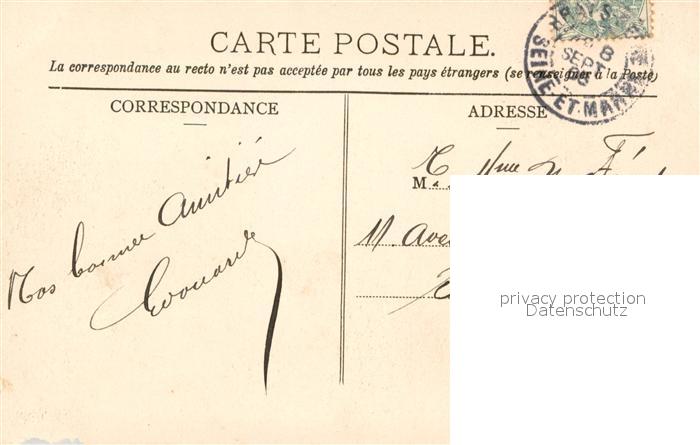 CARTE POSTALE.
La correspondance au recto n'est pas acceptée par tous les pays étrangers (se renseigner à la Poste)
CORRESPONDANCE
ADRESSE
8
SEPT
SEINE-ET-MARNE
M
11. Ave
Nos bonnes Amitiés
Edouard
privacy protection
Datenschutz